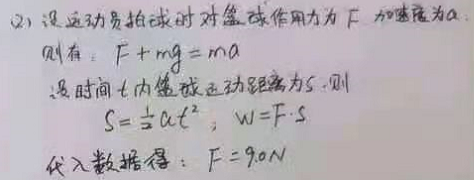 (2) 设运动员拍球时对篮球作用力为F 加速度为a.
则有: F+mg=ma
设时间t内篮球运动距离为s.则
S=½at², W=F·S
代入数据得: F=9.0N